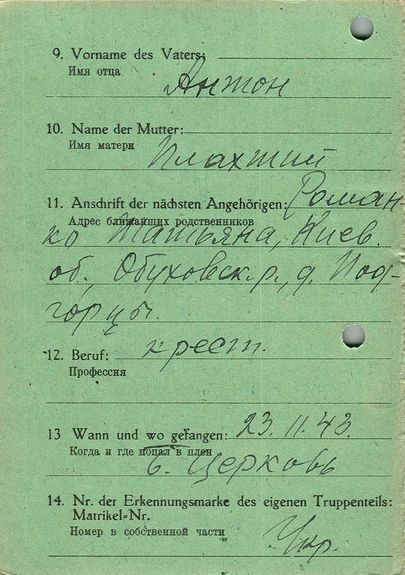 9. Vorname des Vaters:
Имя отца
Антон
10. Name der Mutter:
Имя матери
Плахтий
11. Anschrift der nächsten Angehörigen: Роман-
Адрес ближайших родственников
ко Татьяна, Киев.
об., Обуховск. р., д. Под-
горцы.
12. Beruf: крест.
Профессия
13 Wann und wo gefangen: 23.11.43.
Когда и где попал в плен
б. Церковь
14. Nr. der Erkennungsmarke des eigenen Truppenteils:
Matrikel-Nr.
Номер в собственной части
Укр.